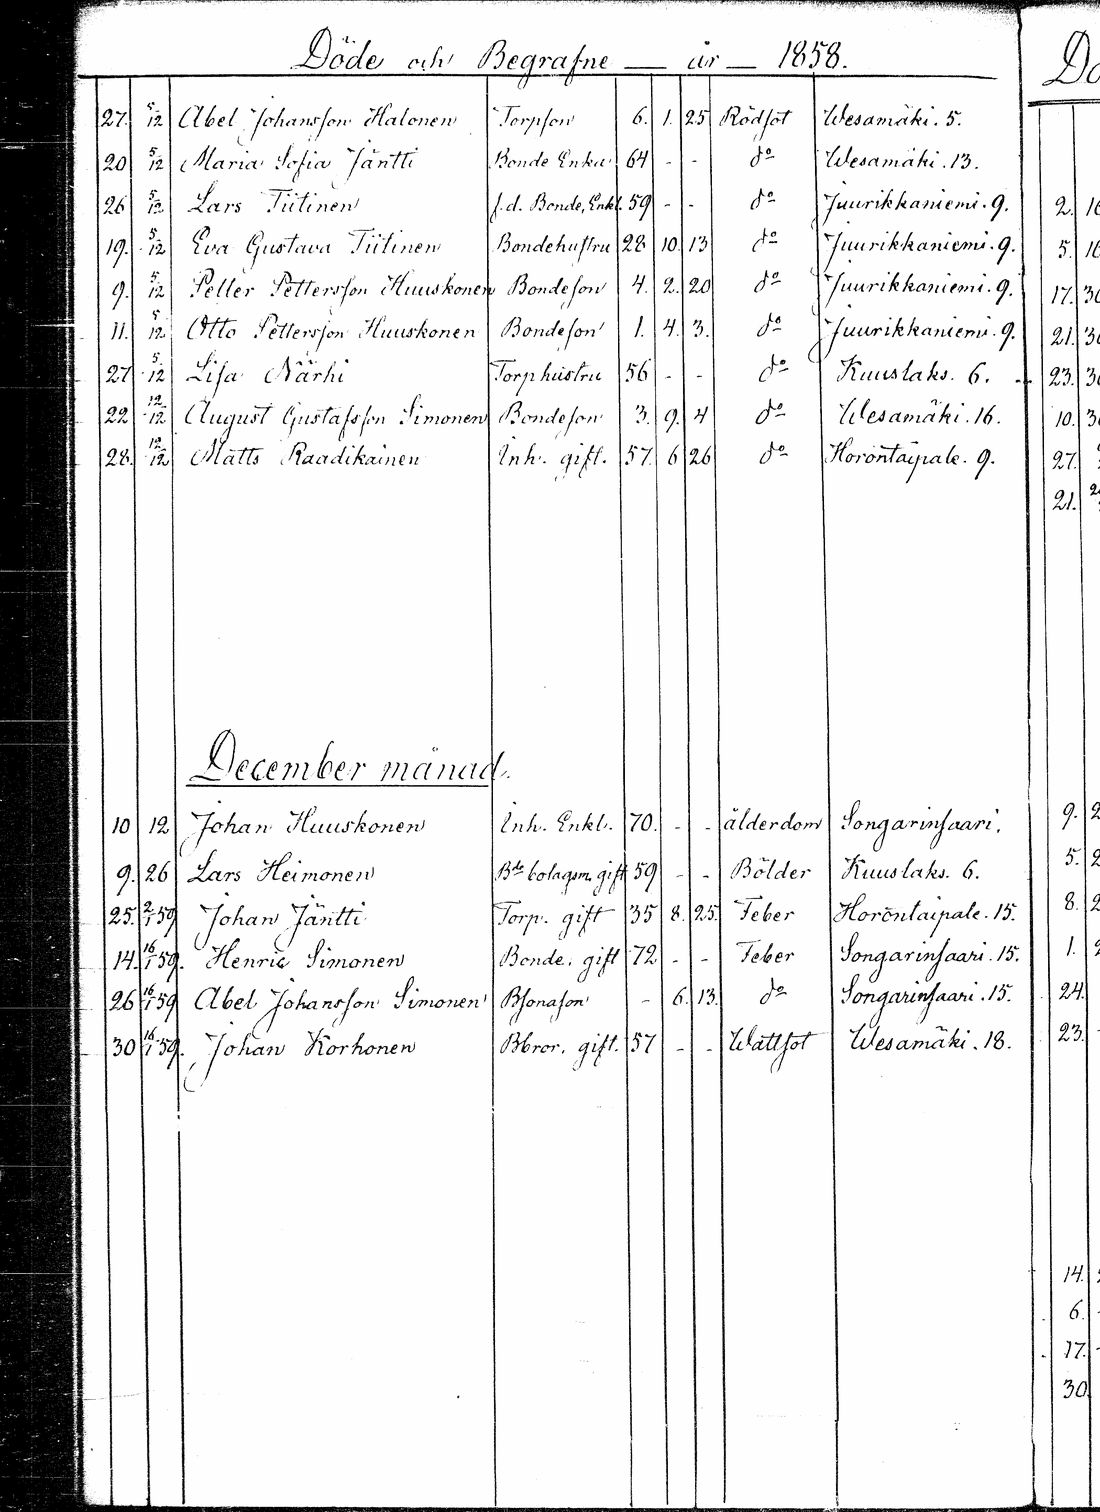 Döde och Begrafne — år — 1858.
27. 5/12 Abel Johansson Halonen Torpson 6. 1. 25 Rödsot Wesamäki. 5.
20 5/12 Maria Sofia Jäntti Bonde Enka 64 - - do Wesamäki. 13.
26 5/12 Lars Tiitinen f.d. Bonde, Enkl. 59 - - do Juurikkaniemi. 9.
19. 5/12 Eva Gustava Tiitinen Bondehustru 28 10. 13 do Juurikkaniemi. 9.
9. 5/12 Petter Pettersson Huuskonen Bondeson 4. 2. 20 do Juurikkaniemi. 9.
11. 5/12 Otto Pettersson Huuskonen Bondeson 1. 4. 3. do Juurikkaniemi. 9.
27 5/12 Lisa Närhi Torphustru 56 - - do Kuuslaks. 6.
22 12/12 August Gustafsson Simonen Bondeson 3. 9. 4 do Wesamäki. 16.
28. 12/12 Matts Raadikainen Inh. gift. 57. 6 26 do Horontaipale. 9.
December månad.
10 12 Johan Huuskonen Inh. Enkl. 70. - - ålderdom Songarinsaari.
9. 26 Lars Heimonen Bde bolagsm. gift 59 - - Bölder Kuuslaks. 6.
25. 2/1 59 Johan Jäntti Torp. gift 35 8. 25. Feber Horontaipale. 15.
14. 16/1 59. Henric Simonen Bonde. gift 72 - - Feber Songarinsaari. 15.
26 16/1 59 Abel Johansson Simonen Bsonason - 6. 13. do Songarinsaari. 15.
30 16/1 59. Johan Korhonen Bbror. gift. 57 - - Wattsot Wesamäki. 18.
Dö
2. 16
5. 16
17. 30
21. 30
23. 30
10. 30
27.
21.
9. 2
5. 2
8. 2
1. 2
24.
23.
14.
6.
17.
30